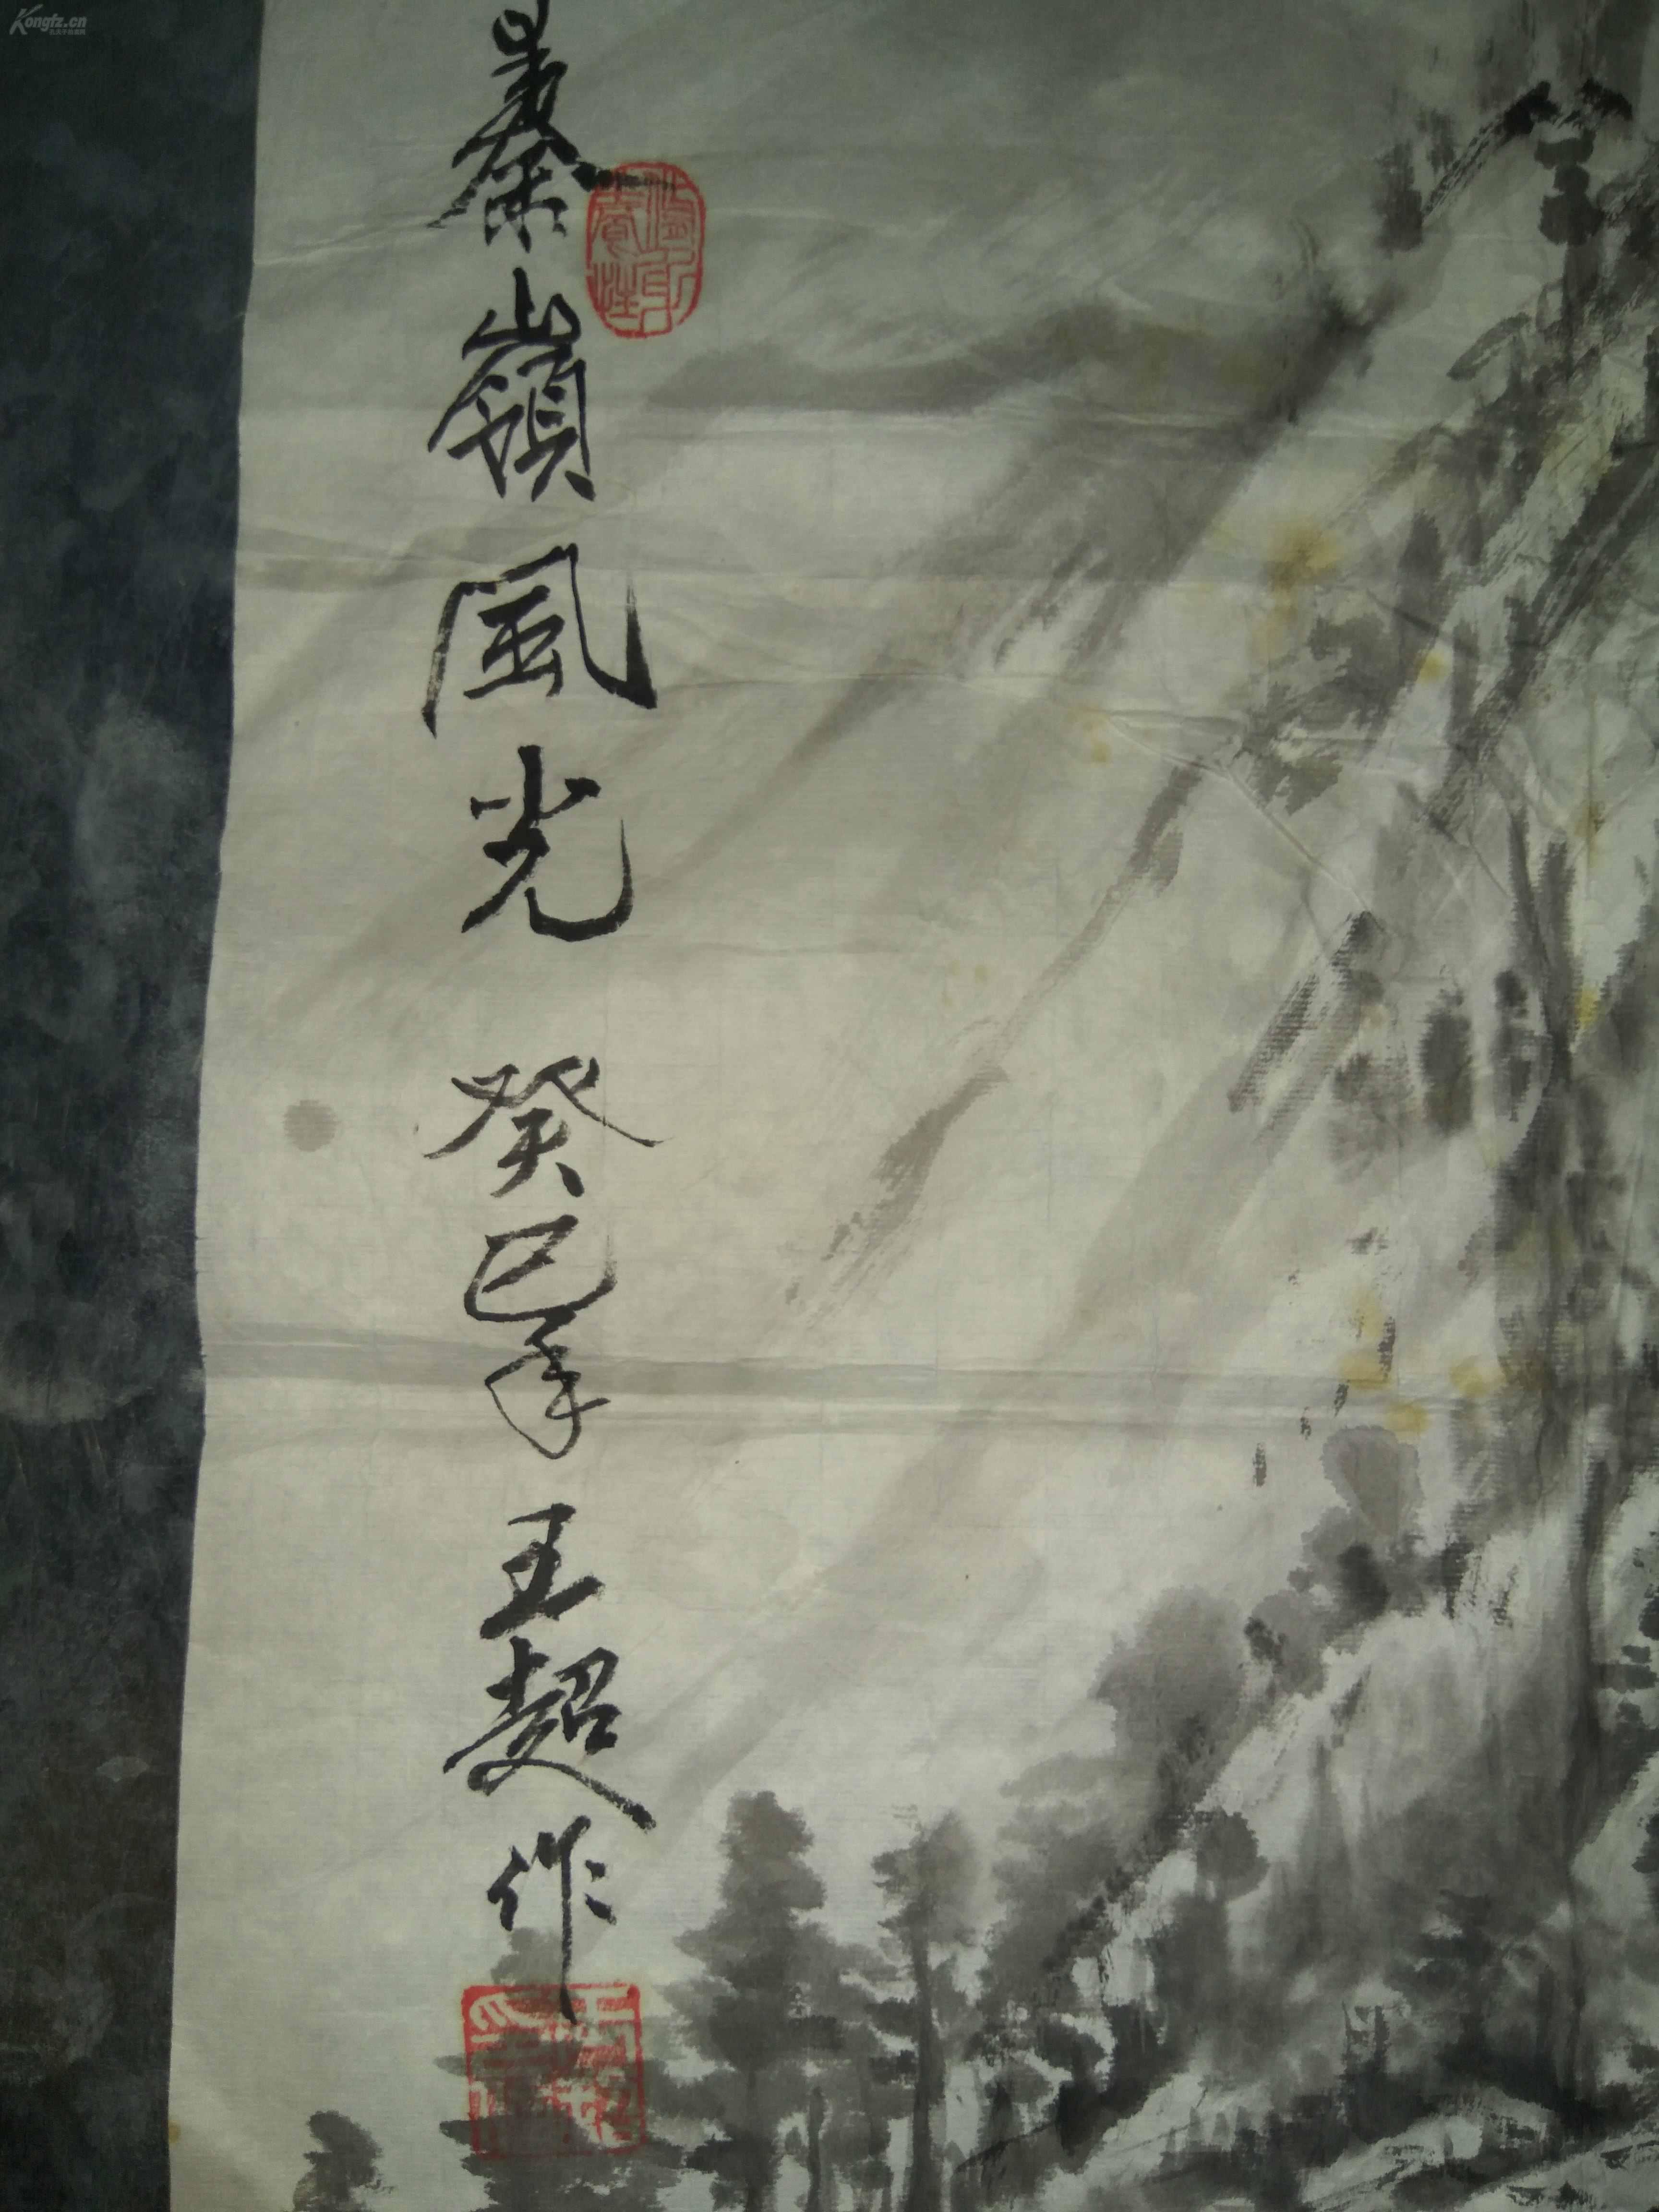 Kongfz.cn
秦嶺風光 癸巳年 王超作